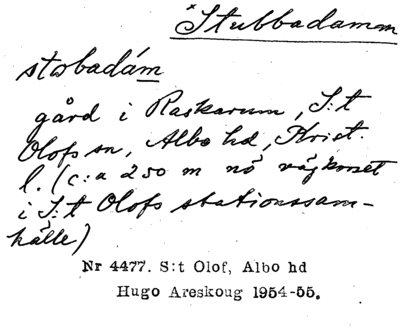 *Stubbadammen
stobadám
gård i Raskarum, S:t
Olofs sn, Albo hd, Krist.
l. (c:a 250 m nö vägkorset
i S:t Olofs stationssam-
hälle)
Nr 4477. S:t Olof, Albo hd
Hugo Areskoug 1954-55.